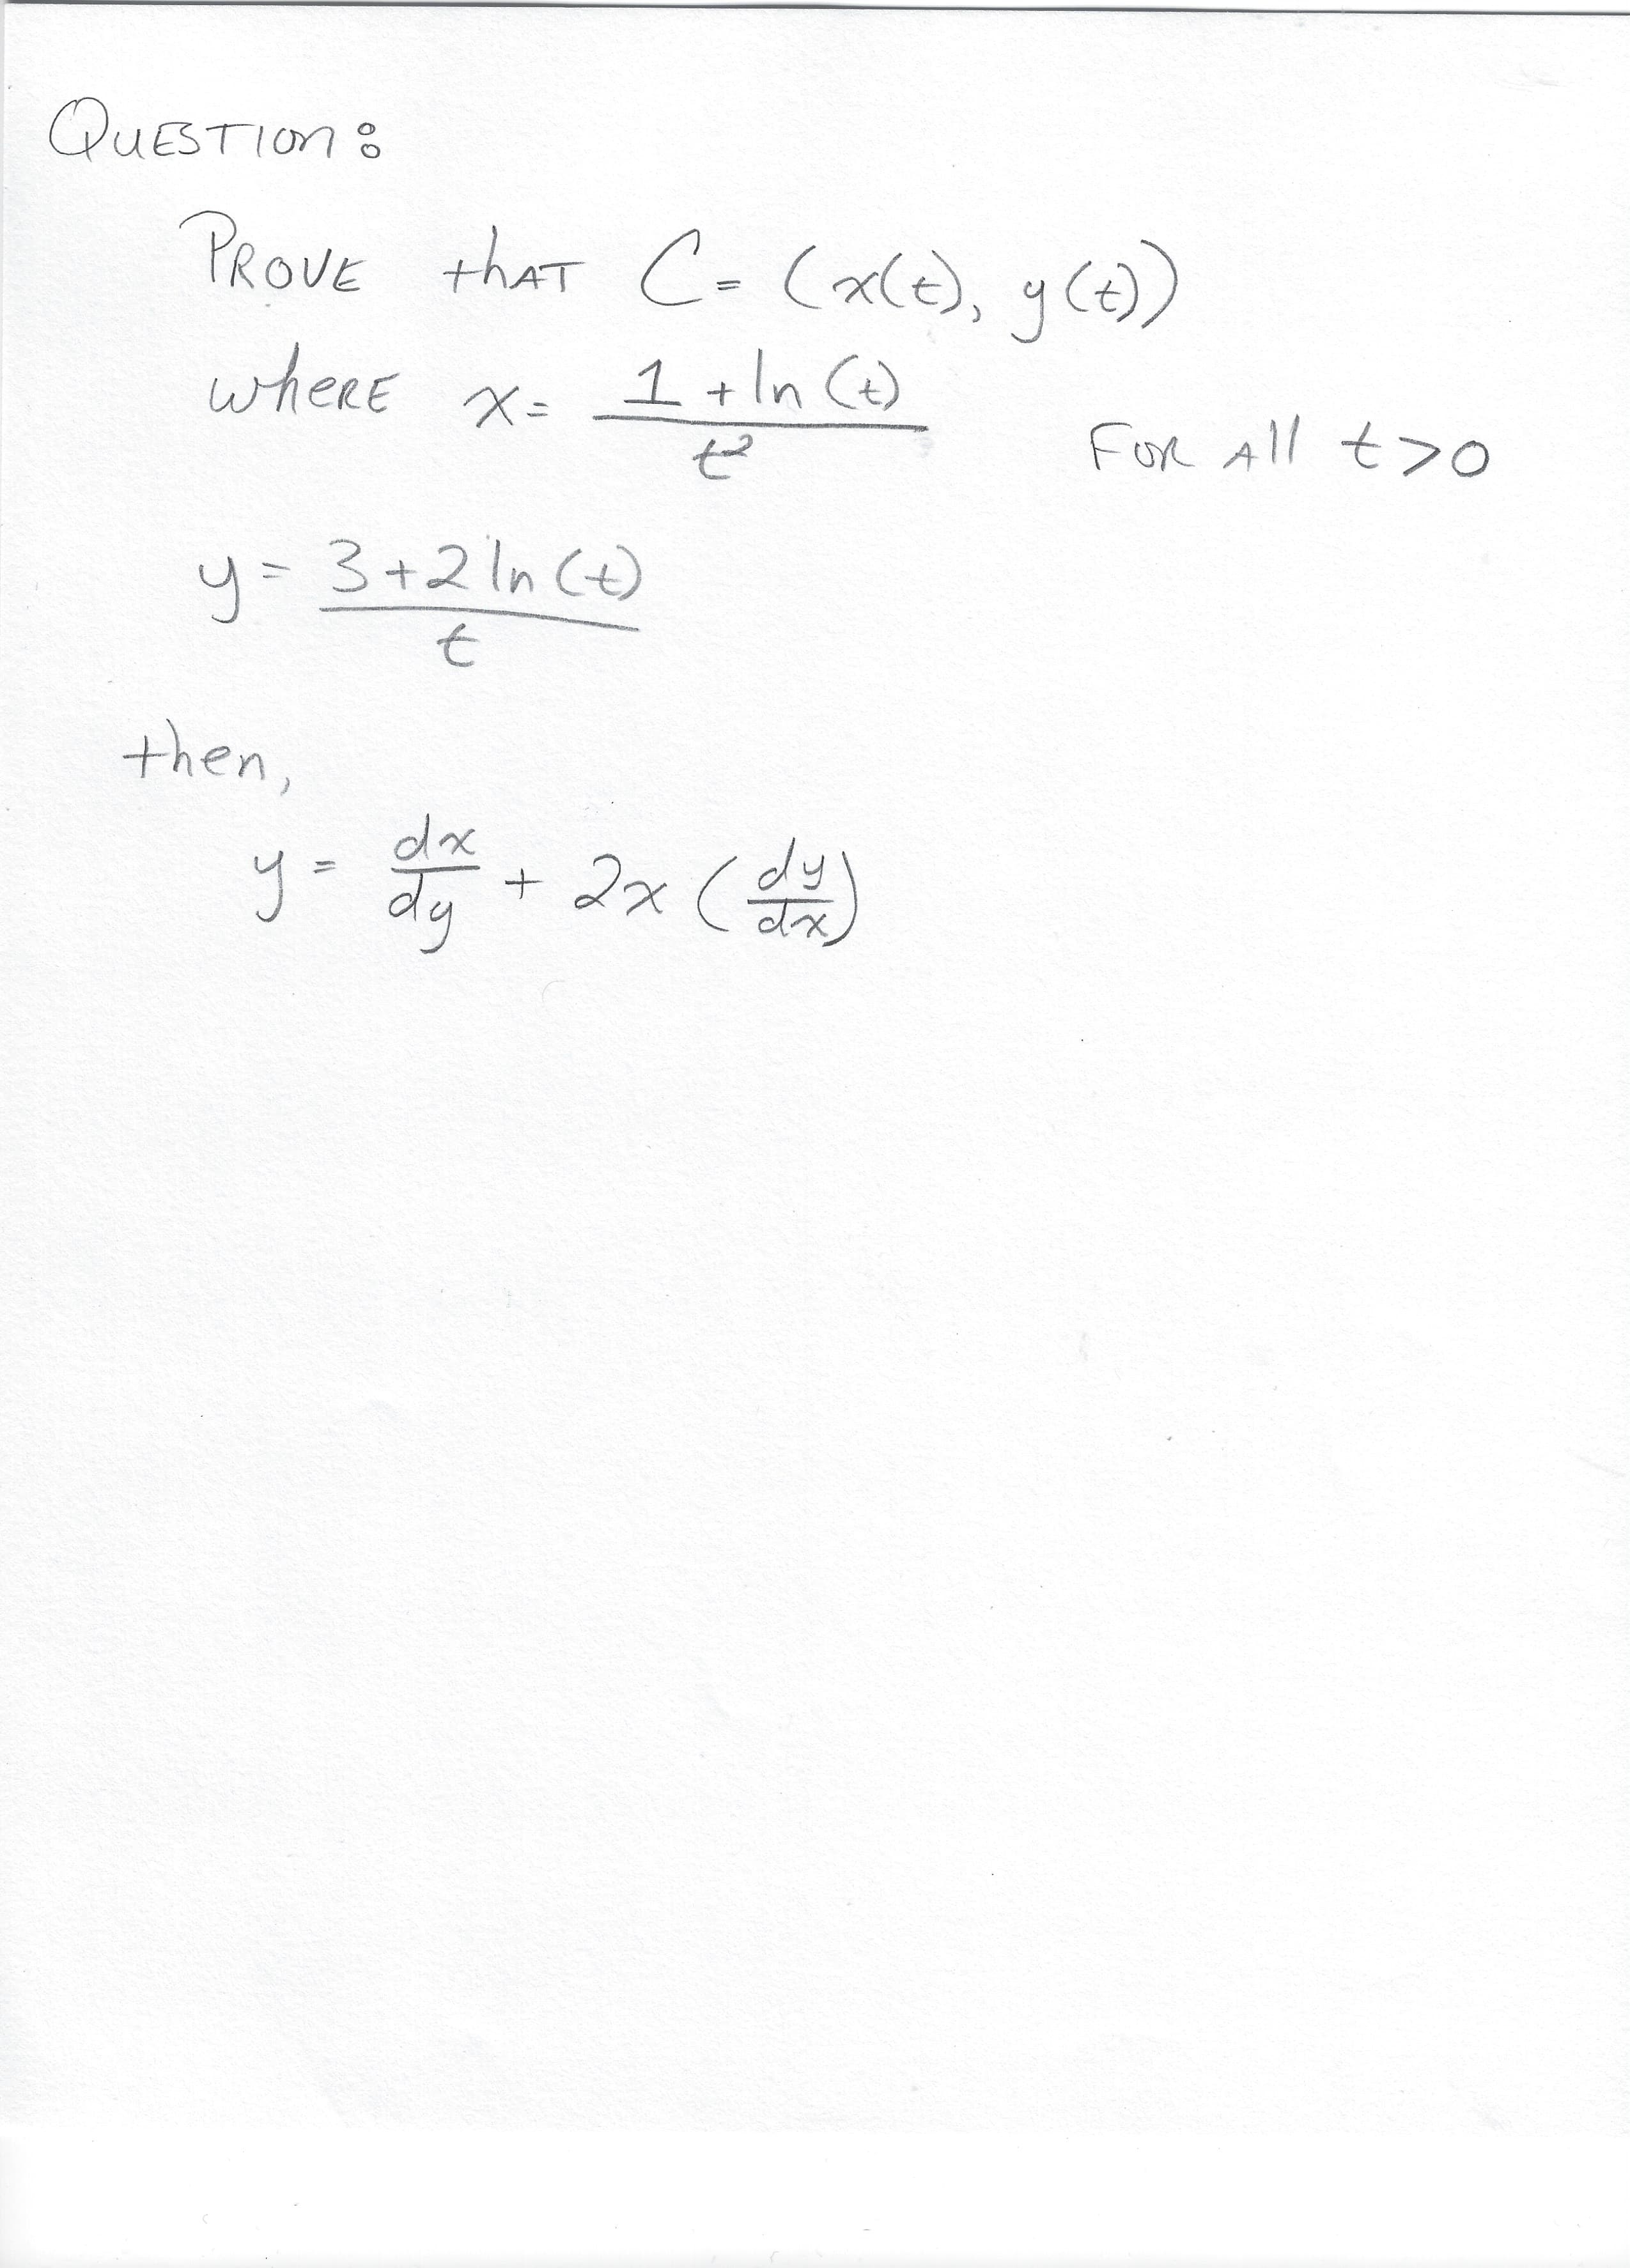 QUESTION:
PROVE that C = (x(t), y(t))
where x = \frac{1 + ln(t)}{t^2} FOR All t > 0
y = \frac{3 + 2 ln(t)}{t}
then,
y = \frac{dx}{dy} + 2x (\frac{dy}{dx})